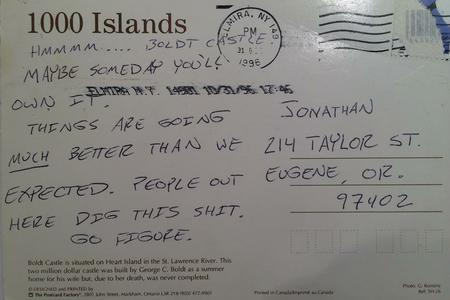 1000 Islands
ELMIRA, NY 149
PM
1996
HMMMM.... BOLDT CASTLE.
MAYBE SOMEDAY YOU'LL
ELMIRA N.Y. 14901 10/31/96 17:46
OWN IT.
THINGS ARE GOING
MUCH BETTER THAN WE
EXPECTED. PEOPLE OUT
HERE DIG THIS SHIT.
GO FIGURE.
JONATHAN
214 TAYLOR ST.
EUGENE, OR.
97402
Boldt Castle is situated on Heart Island in the St. Lawrence River. This
two million dollar castle was built by George C. Boldt as a summer
home for his wife but, due to her death, was never completed.
© DESIGNED and PRINTED by
The Postcard Factory 2801 John Street, Markham, Ontario L3R 2Y8 (905) 477-9901
Printed in Canada/Imprimé au Canada
Photo: G. Romany